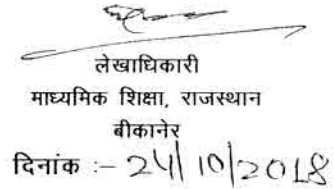 लेखाधिकारी
माध्यमिक शिक्षा, राजस्थान
बीकानेर
दिनांक :- 24/10/2018